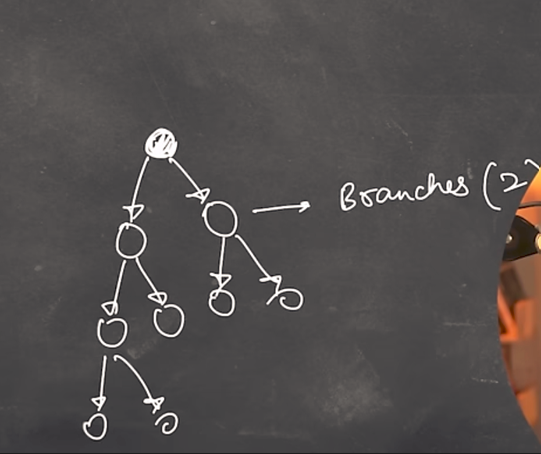 Branches (2)